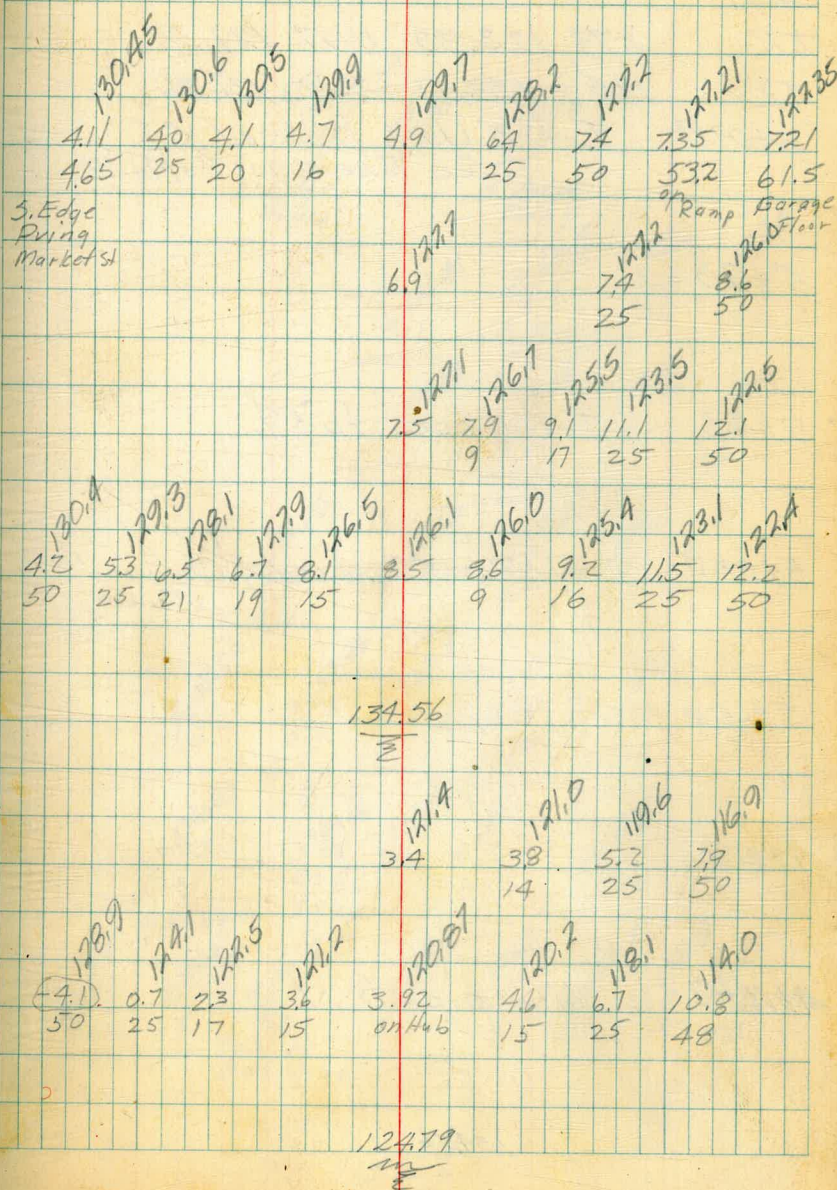 130.45 130.6 130.5 129.9 129.7 128.2 127.2 127.21 127.35
4.11 4.0 4.1 4.7 4.9 6.4 7.4 7.35 7.21
46.5 25 20 16 25 50 53.2 61.5
S. Edge on Ramp Garage
Pving Floor
Market St
127.7 127.2 126.0
6.9 7.4 8.6
25 50
127.1 126.7 125.5 123.5 122.5
7.5 7.9 9.1 11.1 12.1
9 17 25 50
130.4 129.3 128.1 127.9 126.5 126.1 126.0 125.4 123.1 122.4
4.2 5.3 6.5 6.7 8.1 8.5 8.6 9.2 11.5 12.2
50 25 21 19 15 9 16 25 50
134.56
121.4 121.0 119.6 116.9
3.4 3.8 5.2 7.9
14 25 50
128.9 124.1 122.5 121.2 120.87 120.2 118.1 114.0
-4.1 0.7 2.3 3.6 3.92 4.6 6.7 10.8
50 25 17 15 on Hub 15 25 48
124.79